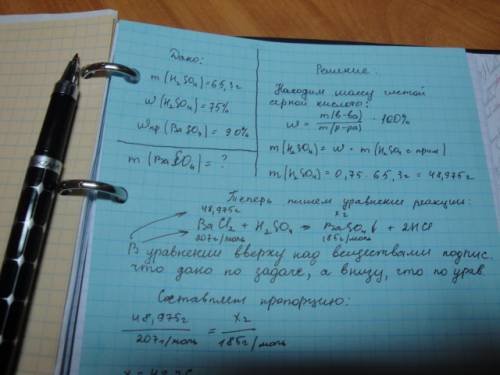 Дано:
m(H₂SO₄)=65,3г
W(H₂SO₄)=75%
Wпр(BaSO₄)=90%
m(BaSO₄)=?
Решение:
Находим массу чистой
серной кислоты:
W = m(в-ва) / m(р-ра) · 100%
m(H₂SO₄) = W · m(H₂SO₄ с прим)
m(H₂SO₄) = 0,75 · 65,3г = 48,975г
Теперь пишем уравнение реакции:
48,975г xг
BaCl₂ + H₂SO₄ = BaSO₄↓ + 2HCl
207г/моль 185г/моль
В уравнении вверху над веществами подпис.
что дано по задаче, а внизу, что по урав.
Составляем пропорцию:
48,975г / 207г/моль = xг / 185г/моль